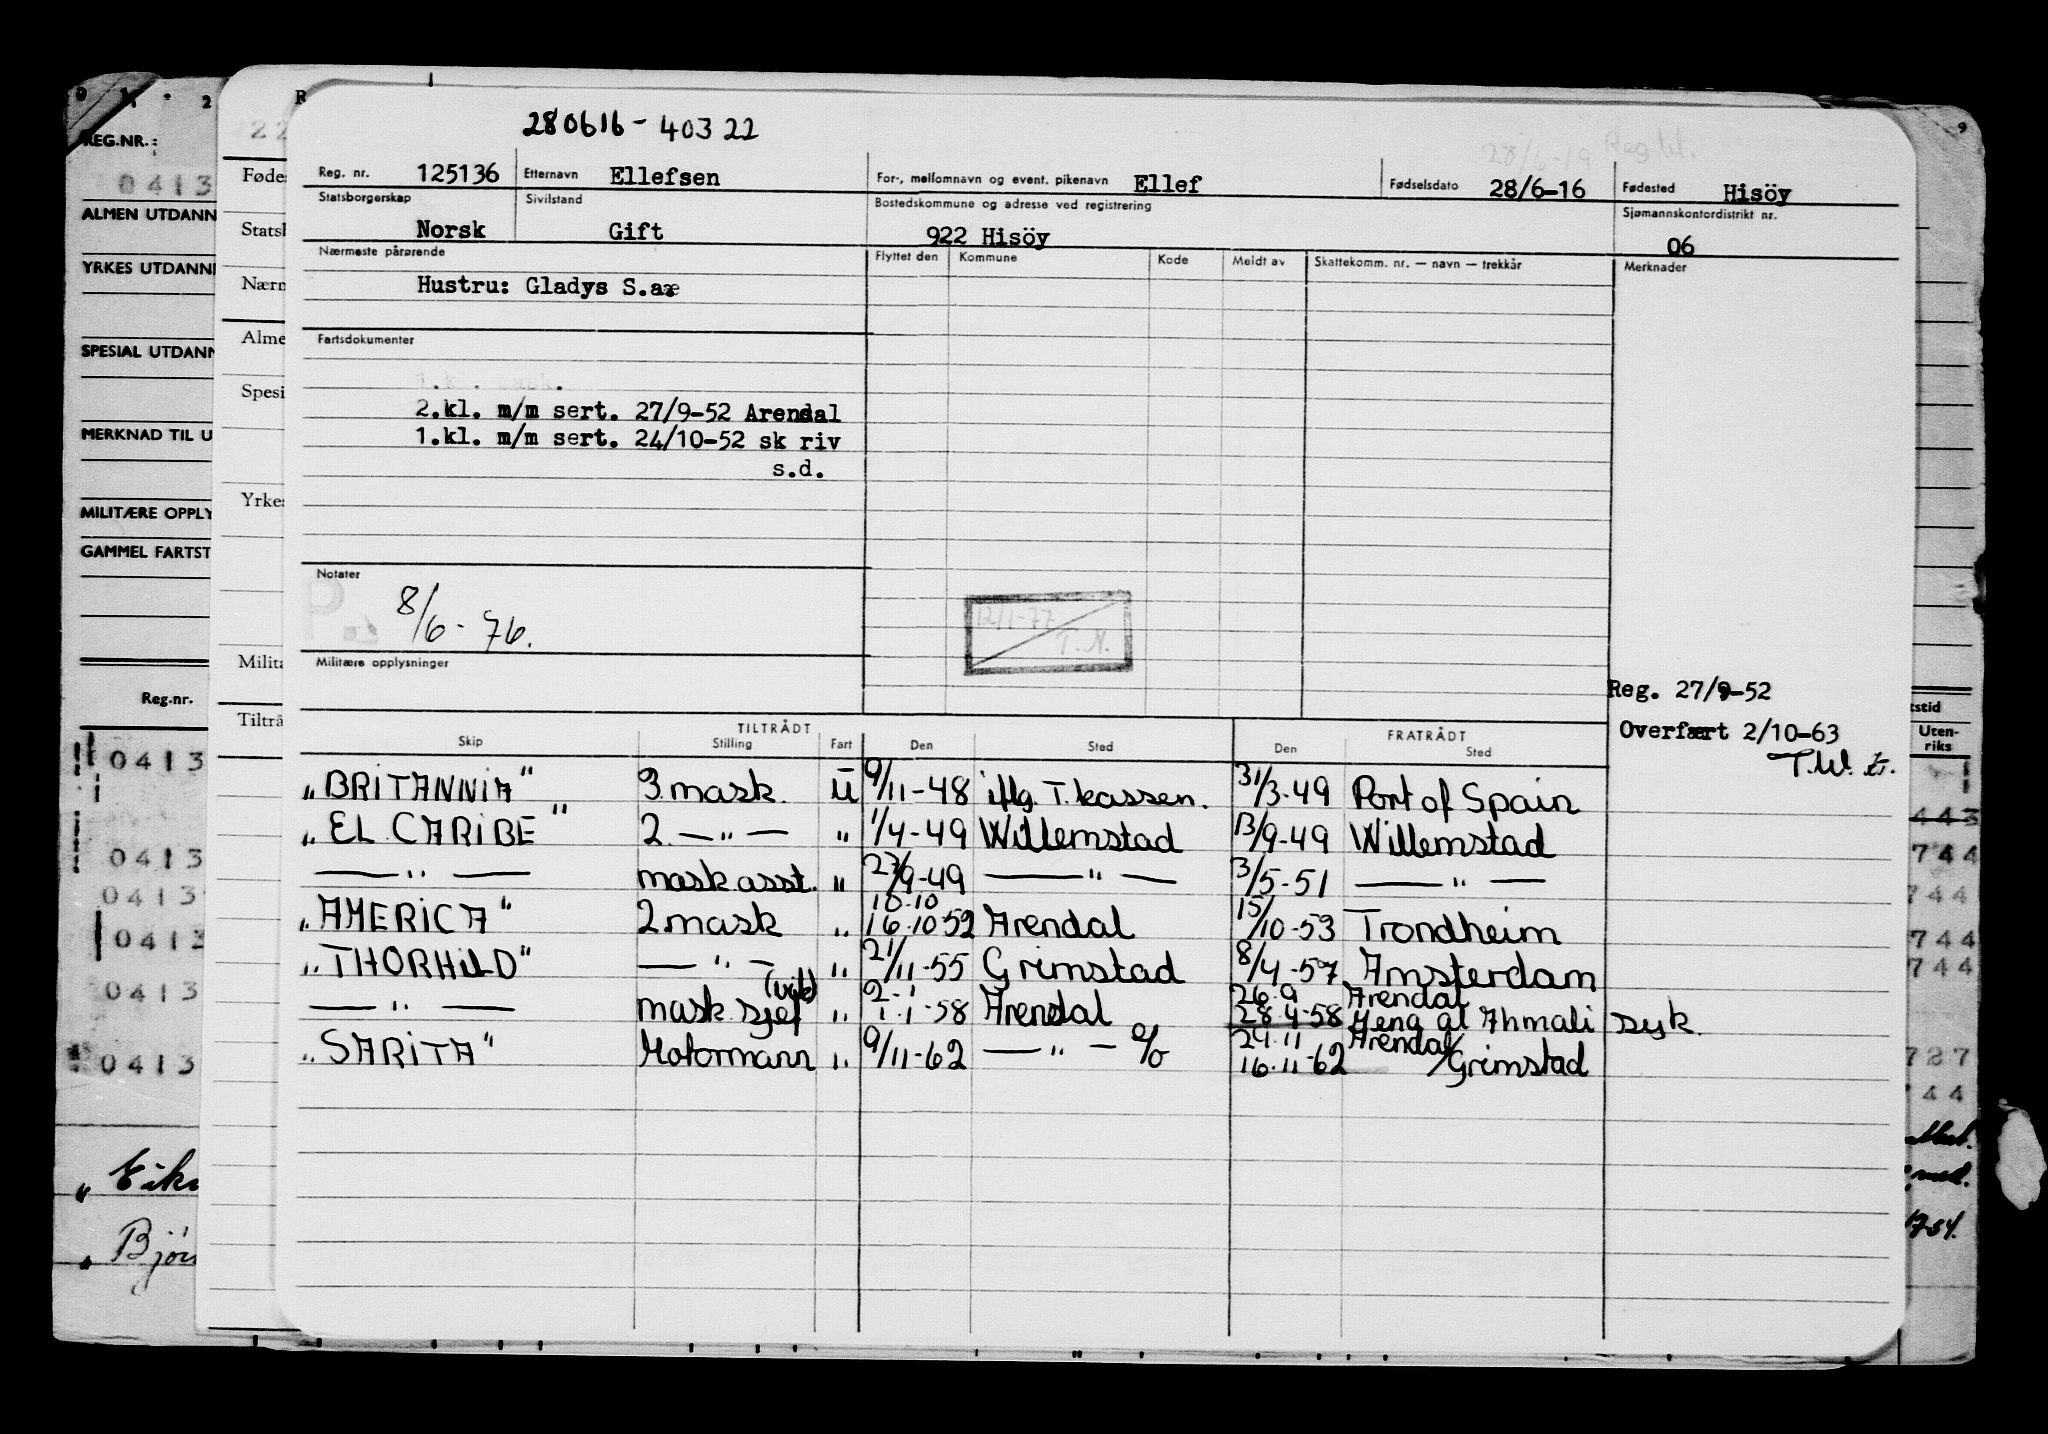 280616-40322
Reg. nr. 125136 Etternavn Ellefsen For-, mellomnavn og event. pikenavn Ellef Fødselsdato 28/6-16 Fødested Hisöy
Statsborgerskap Norsk Sivilstand Gift Bostedskommune og adresse ved registrering 922 Hisöy Sjømannskontordistrikt nr. 06
Nærmeste pårørende Flyttet den Kommune Kode Meldt av Skattekomm. nr. — navn — trekkår Merknader
Hustru: Gladys S.a.
Fartsdokumenter
2.kl. m/m sert. 27/9-52 Arendal
1.kl. m/m sert. 24/10-52 sk riv
s.d.
Notater
8/6-76.
12/1-77
T.N.
Militære opplysninger
Reg. 27/9-52
Overfært 2/10-63
TILTRÅDT FRATRÅDT
Skip Stilling Fart Den Sted Den Sted
"BRITANNIA" 3.mask. U 9/11-48 iflg. T.kassen. 31/3-49 Port of Spain
"EL CARIBE" 2. —"— " 1/4-49 Willemstad 13/9-49 Willemstad
—"— mask asst. " 27/9-49 —"— 3/5-51 —"—
"AMERICA" 2 mask " 10.10 16.10-52 Arendal 15/10-53 Trondheim
"THORHILD" —"— " 21/11-55 Grimstad 8/4-57 Amsterdam
—"— mask sjef (vik) " 2-1 1.1-58 Arendal 26.9 Arendal 28.4-58 Mena al Ahmadi syk.
"SARITA" Motormann " 9/11-62 —"— % 24.11 Arendal 16.11-62 /Grimstad
REG.NR.:
0413
ALMEN UTDANN
YRKES UTDANN
SPESIAL UTDANN
MERKNAD TIL U
MILITÆRE OPPLY
GAMMEL FARTST
Reg.nr.
0413
0413
0413
0413
0413
0413
"Eik
"Bjør
Føde
Stats
Nærn
Alme
Spesi
Yrke
Milita
Tiltrå
stid
Uten-
riks
443
744
744
744
744
727
44